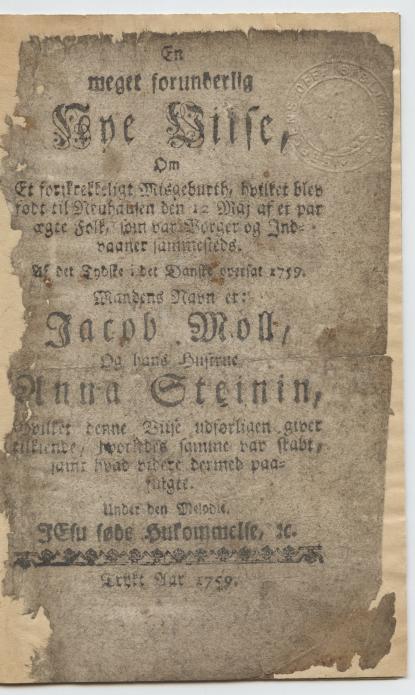 En
meget forunderlig
Nye Viise,
Om
Et forskrekkeligt Misgeburth, hvilket blev
født til Neuhausen den 12 Maj af et par
ægte Folk, som var Borger og Ind-
vaaner sammesteds.
Af det Tydske i det Danske oversat 1759.
Mandens Navn er:
Jacob Moll,
Og hans Hustrue
Anna Steinin,
Hvilket denne Viise udførligen giver
tilkiende, hvorledes samme var skabt,
samt hvad videre dermed paa-
fulgte.
Under den Melodie.
JEsu søde Hukommelse, &c.
Trykt Aar 1759.